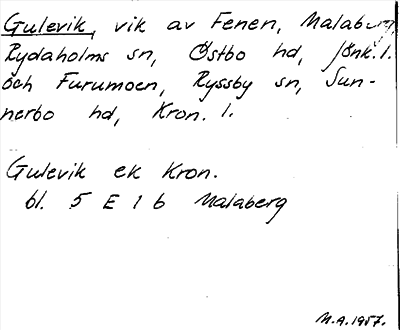 Gulevik, vik av Fenen, Malaberg,
Rydaholms sn, Östbo hd, Jönk. l.
och Furumoen, Ryssby sn, Sun-
nerbo hd, Kron. l.
Gulevik ek Kron.
bl. 5 E 1 b Malaberg
M.A. 1957.